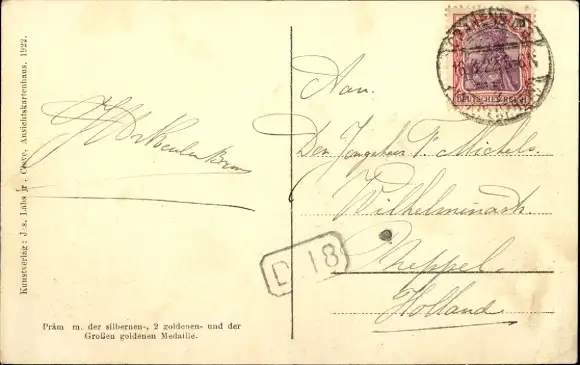 Kunstverlag: Jos. Labs jr. Cleve, Ansichtskartenhaus. 1922.
Präm m. der silbernen-, 2 goldenen- und der
Großen goldenen Medaille.
DEUTSCHES REICH
Aan.
Den Jongeheer P. Michels.
Wilhelminastr.
Meppel.
Holland
D. 18